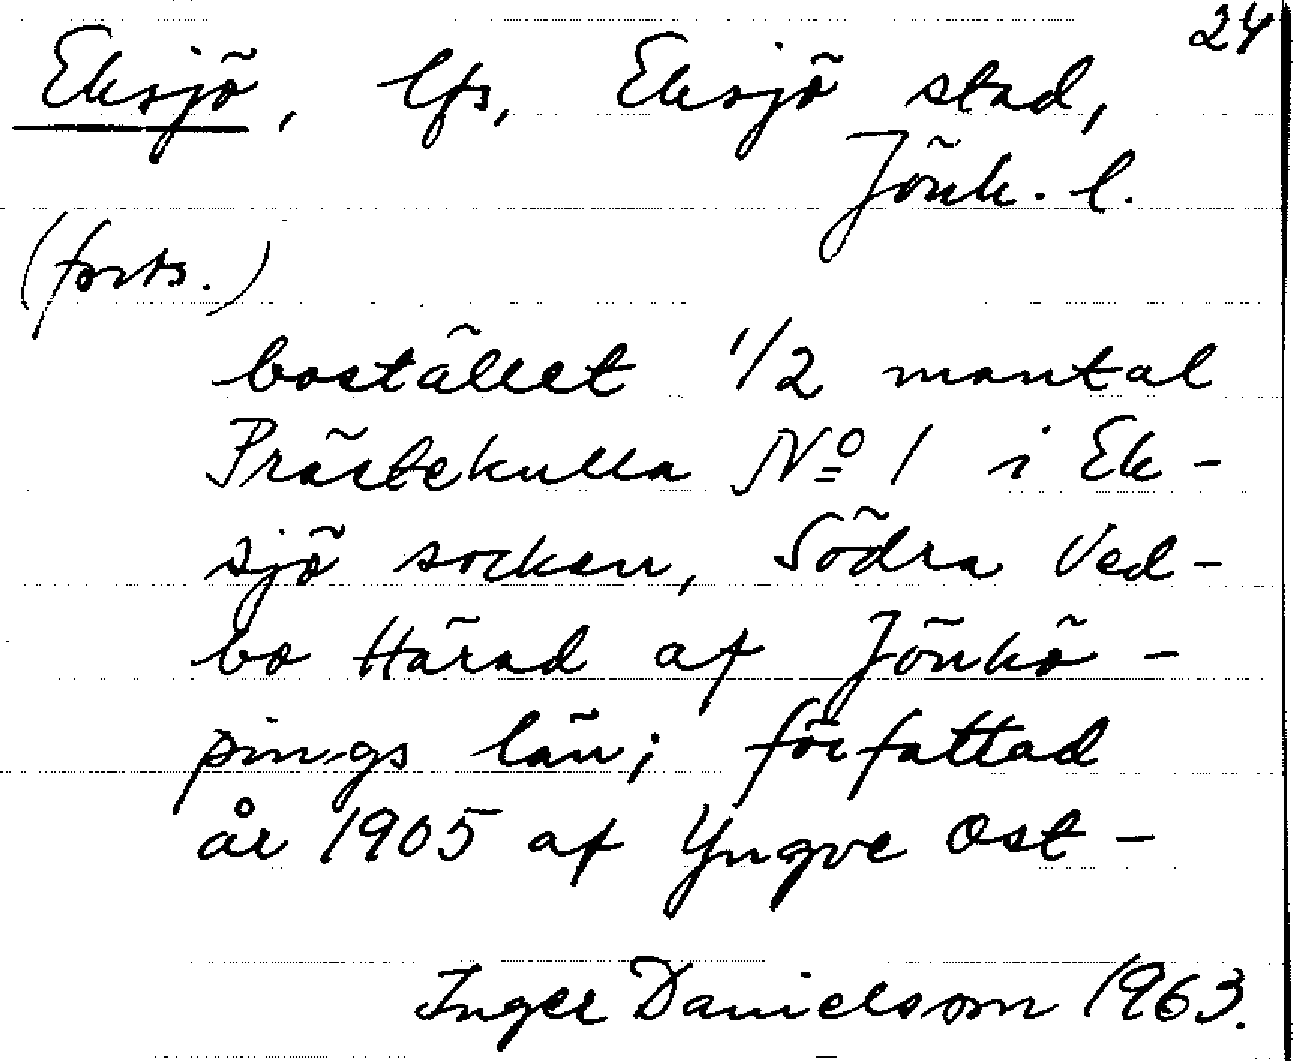 24
Eksjö, lfs, Eksjö stad,
Jönk. l.
(forts.)
bostället 1/2 mantal
Prästekulla No 1 i Ek-
sjö socken, Södra Ved-
bo Härad af Jönkö-
pings län; författad
år 1905 af Yngve Ost-
Inger Danielsson 1963.